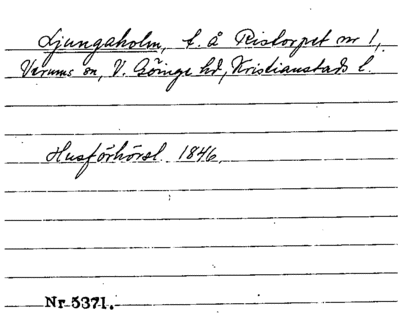 Ljungaholm, t. å Ristorpet nr 1,
Verums sn, V. Göinge hd, Kristianstads l.
Husförhörsl. 1846.
Nr 5371.